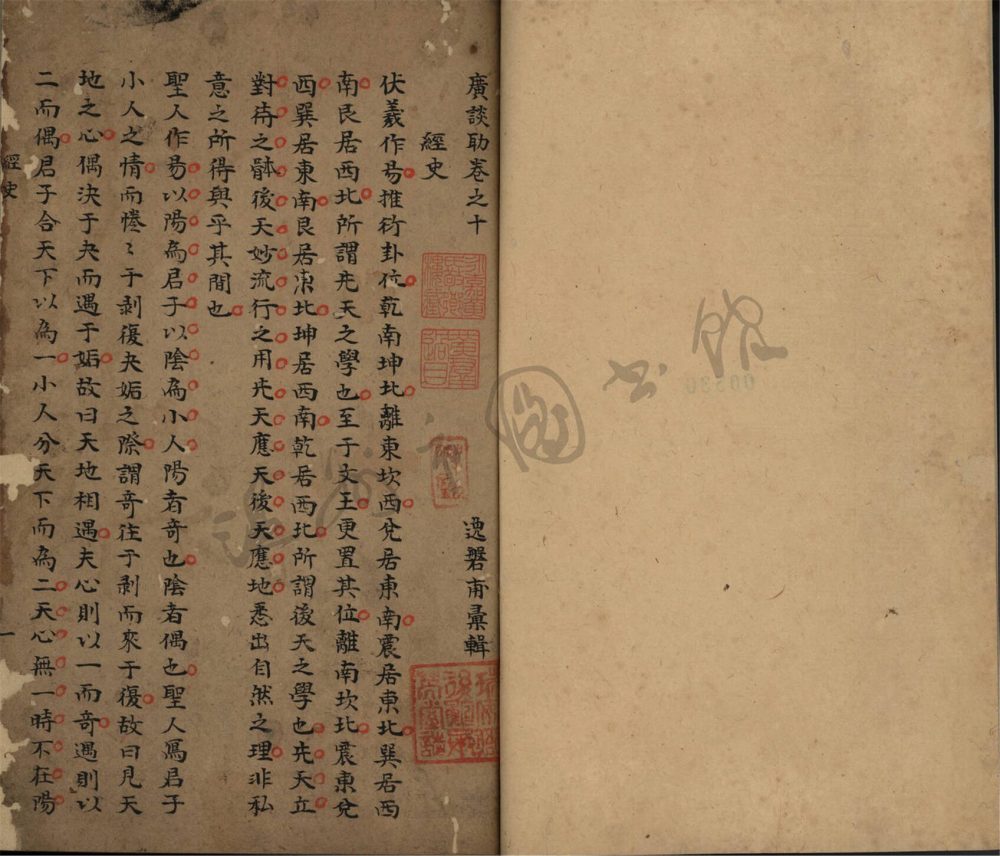 廣談助卷之十
逸磐甫彙輯
經史
伏羲作易推衍卦位乾南坤北離東坎西兌居東南震居東北巽居西
南艮居西北所謂先天之學也至于文王更置其位離南坎北震東兌
西巽居東南艮居東北坤居西南乾居西北所謂後天之學也先天立
對待之骵後天妙流行之用先天應天後天應地悉出自然之理非私
意之所得與乎其間也
聖人作易以陽為君子以陰為小人陽者奇也陰者偶也聖人寫君子
小人之情而惓〻于剥復夬姤之際謂奇往于剥而來于復故曰見天
地之心偶決于夬而遇于姤故曰天地相遇夫心則以一而奇遇則以
二而偶君子合天下以為一小人分天下而為二天心無一時不在陽
經史
一
圖書館
00580